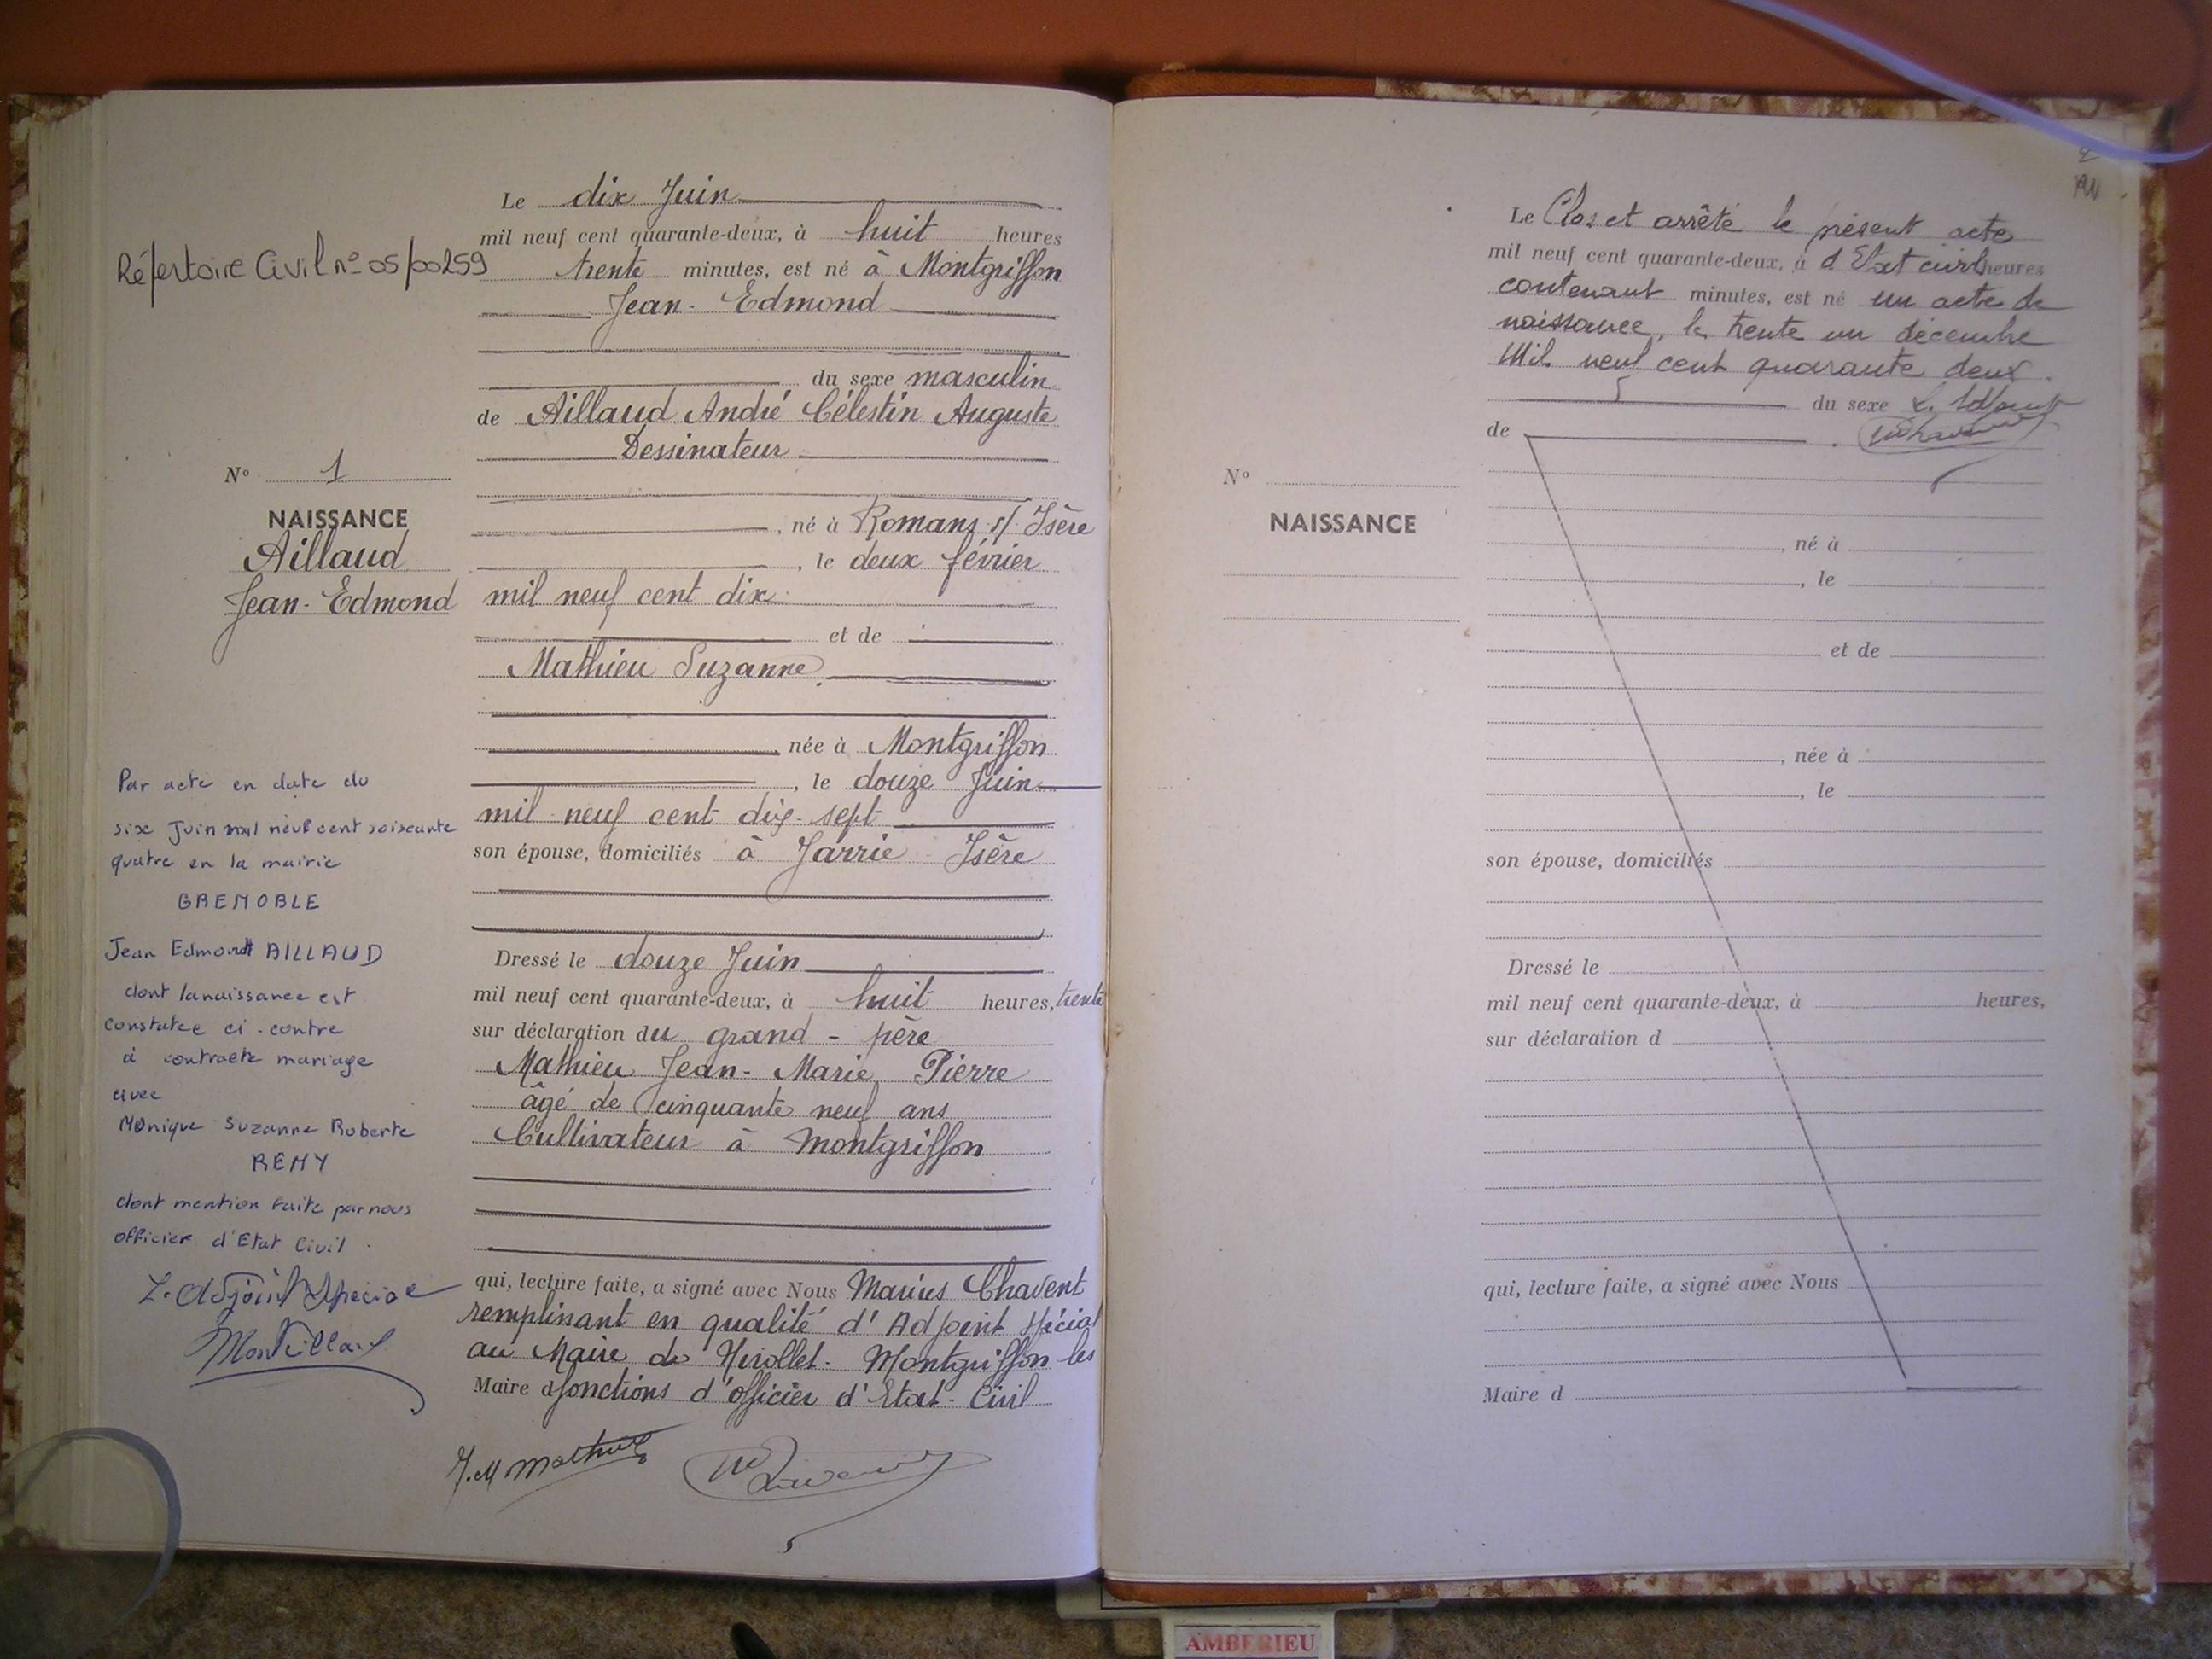 Le dix Juin
mil neuf cent quarante-deux, à huit heures
Répertoire Civil n° 05/00259
trente minutes, est né à Montgriffon
Jean-Edmond
du sexe masculin
de Aillaud André Célestin Auguste
Dessinateur
N° 1
NAISSANCE
Aillaud
Jean-Edmond
né à Romans s/ Isère
, le deux février
mil neuf cent dix
et de
Mathieu Suzanne
née à Montgriffon
, le douze Juin
mil neuf cent dix-sept
son épouse, domiciliés à Jarrie - Isère
Dressé le douze Juin
mil neuf cent quarante-deux, à huit heures, trente
sur déclaration du grand-père
Mathieu Jean-Marie Pierre
âgé de cinquante neuf ans
Cultivateur à Montgriffon
qui, lecture faite, a signé avec Nous Marius Chavent
remplissant en qualité d'Adjoint spécial
au Maire de Montgriffon les
Maire d fonctions d'officier d'Etat-Civil
J.M Mathieu
Par acte en date du
six Juin mil neuf cent soixante
quatre en la mairie
GRENOBLE
Jean Edmond AILLAUD
dont la naissance est
constatée ci-contre
à contracte mariage
avec
Monique Suzanne Roberte
REMY
dont mention faite par nous
officier d'Etat Civil.
L'Adjoint Spécial
Le Clos et arrêté le présent acte
mil neuf cent quarante-deux, à d'Etat civil heures
contenant minutes, est né un acte de
naissance, le trente un décembre
Mil neuf cent quarante deux.
du sexe L'Adjoint
de
N°
NAISSANCE
, né à
, le
et de
, née à
, le
son épouse, domiciliés
Dressé le
mil neuf cent quarante-deux, à heures,
sur déclaration d
qui, lecture faite, a signé avec Nous
Maire d
AMBERIEU